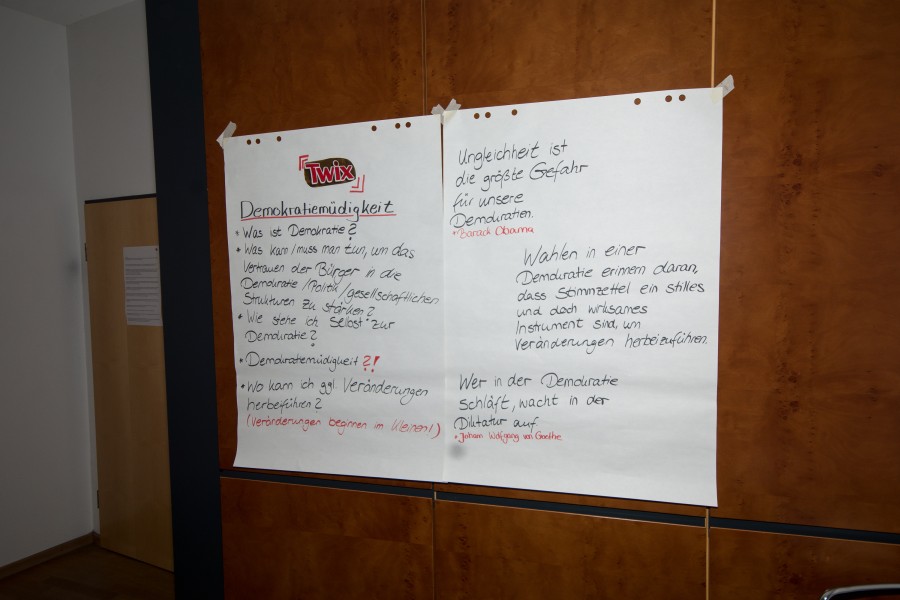 Twix
Demokratiemüdigkeit
• Was ist Demokratie?
• Was kann/muss man tun, um das
Vertrauen der Bürger in die
Demokratie/Politik/gesellschaftlichen
Strukturen zu stärken?
• Wie stehe ich selbst zur
Demokratie?
• Demokratiemüdigkeit?!
• Wo kann ich ggf. Veränderungen
herbeiführen?
(Veränderungen beginnen im Kleinen!)
Ungleichheit ist
die größte Gefahr
für unsere
Demokratien.
• Barack Obama
Wahlen in einer
Demokratie erinnern daran,
dass Stimmzettel ein stilles
und doch wirksames
Instrument sind, um
Veränderungen herbeizuführen.
Wer in der Demokratie
schläft, wacht in der
Diktatur auf
• Johann Wolfgang von Goethe